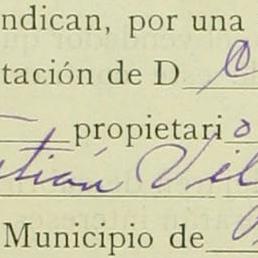 ndican, por una
tación de D
propietario
tián Vil
Municipio de